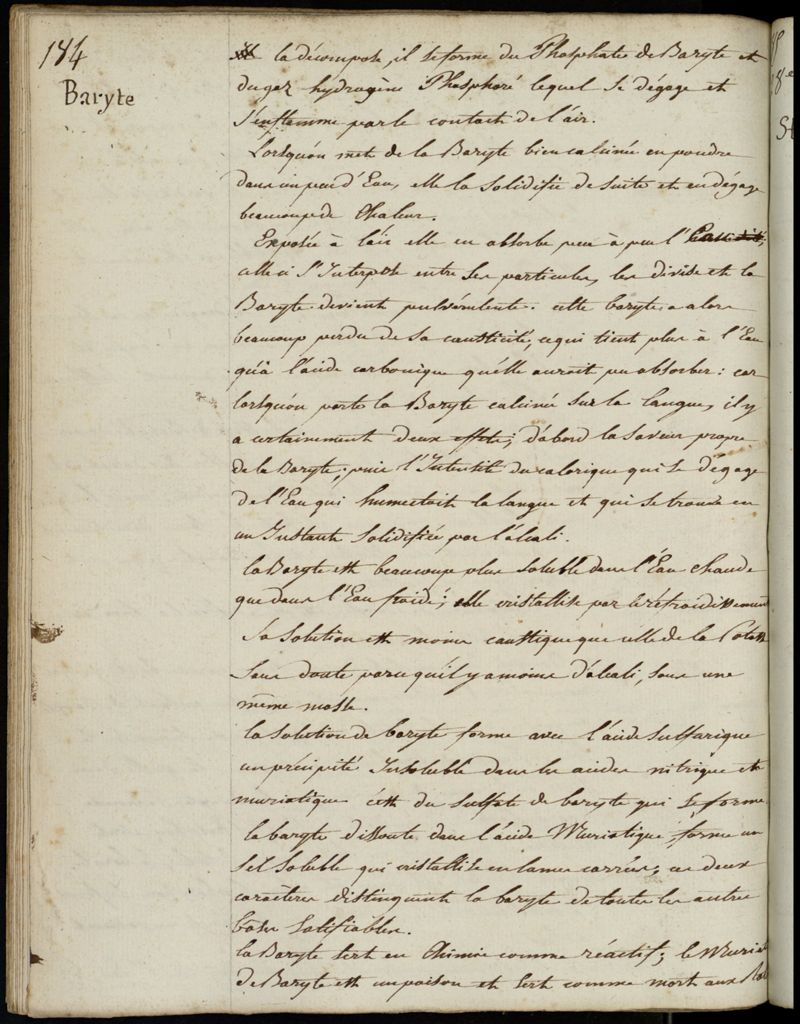 184
Baryte
la décompose, il se forme du Phosphate de Baryte et
du gaz hydrogène Phosphoré lequel se dégage et
s'enflamme par le contact de l'air.
Lorsqu'on met de la Baryte bien calcinée en poudre
dans un peu d'Eau, elle la solidifie de suite et en dégage
beaucoup de Chaleur.
Exposée à l'air elle en absorbe peu à peu l'
celle ci s'Interpose entre ses particules, les divise et la
Baryte devient pulvérulente. cette baryte a alors
beaucoup perdu de sa causticité, ce qui tient plus à l'Eau
qu'à l'acide carbonique qu'elle aurait pu absorber: car
lorsqu'on porte la Baryte calcinée sur la langue, il y
a certainement deux effets; d'abord la saveur propre
de la Baryte; puis l'Intensité du calorique qui se dégage
de l'Eau qui humectait la langue et qui se trouve en
un Instant solidifiée par l'alcali.
la Baryte est beaucoup plus soluble dans l'Eau chaude
que dans l'Eau froide; elle cristallise par le refroidissement
Sa solution est moins caustique que celle de la Potasse
sans doute parce qu'il y a moins d'alcali, sous une
même masse.
la solution de baryte forme avec l'acide sulfurique
un précipité Insoluble dans les acides nitrique et
muriatique c'est du sulfate de baryte qui se forme.
la baryte dissoute dans l'acide Muriatique, forme un
sel soluble qui cristallise en lames carrées; ces deux
caractères distinguent la baryte de toutes les autres
bases salifiables.
la Baryte sert en Chimie comme réactif; le Muri
de Baryte est un poison et sert comme mort aux